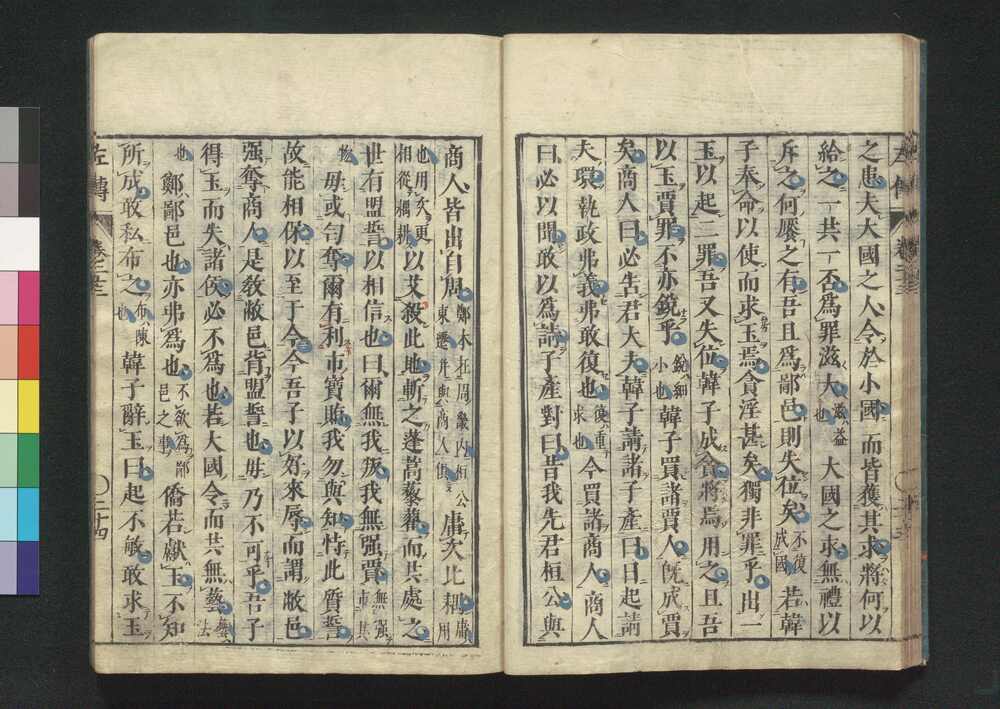 之患夫大國之人令於小國而皆獲其求將何以
給之一共一否爲罪滋大滋益也大國之求無禮以
斥之何饜之有吾且爲鄙邑則失位矣不復成國若韓
子奉命以使而求玉焉貪淫甚矣獨非罪乎出一
玉以起二罪吾又失位韓子成貪將焉用之且吾
以玉賈罪不亦銳乎銳細小也韓子買諸賈人旣成賈
矣商人曰必吿君大夫韓子請諸子產曰日起請
夫環執政弗義弗敢復也復重求也今買諸商人商人
曰必以聞敢以爲請子產對曰昔我先君桓公與
商人皆出自周鄭本在周畿內桓公東遷并與商人俱庸次比耦庸用
也用次更相從耦耕以艾殺此地斬之蓬蒿藜藋而共處之
世有盟誓以相信也曰爾無我叛我無强賈無强市其
物毋或匄奪爾有利市寶賄我勿與知恃此質誓
故能相保以至于今今吾子以好來辱而謂敝邑
强奪商人是敎敝邑背盟誓也毋乃不可乎吾子
得玉而失諸侯必不爲也若大國令而共無藝藝法
也鄭鄙邑也亦弗爲也不欲爲鄙邑之事僑若獻玉不知
所成敢私布之布陳也韓子辭玉曰起不敏敢求玉
左傳
卷二十三
二十四